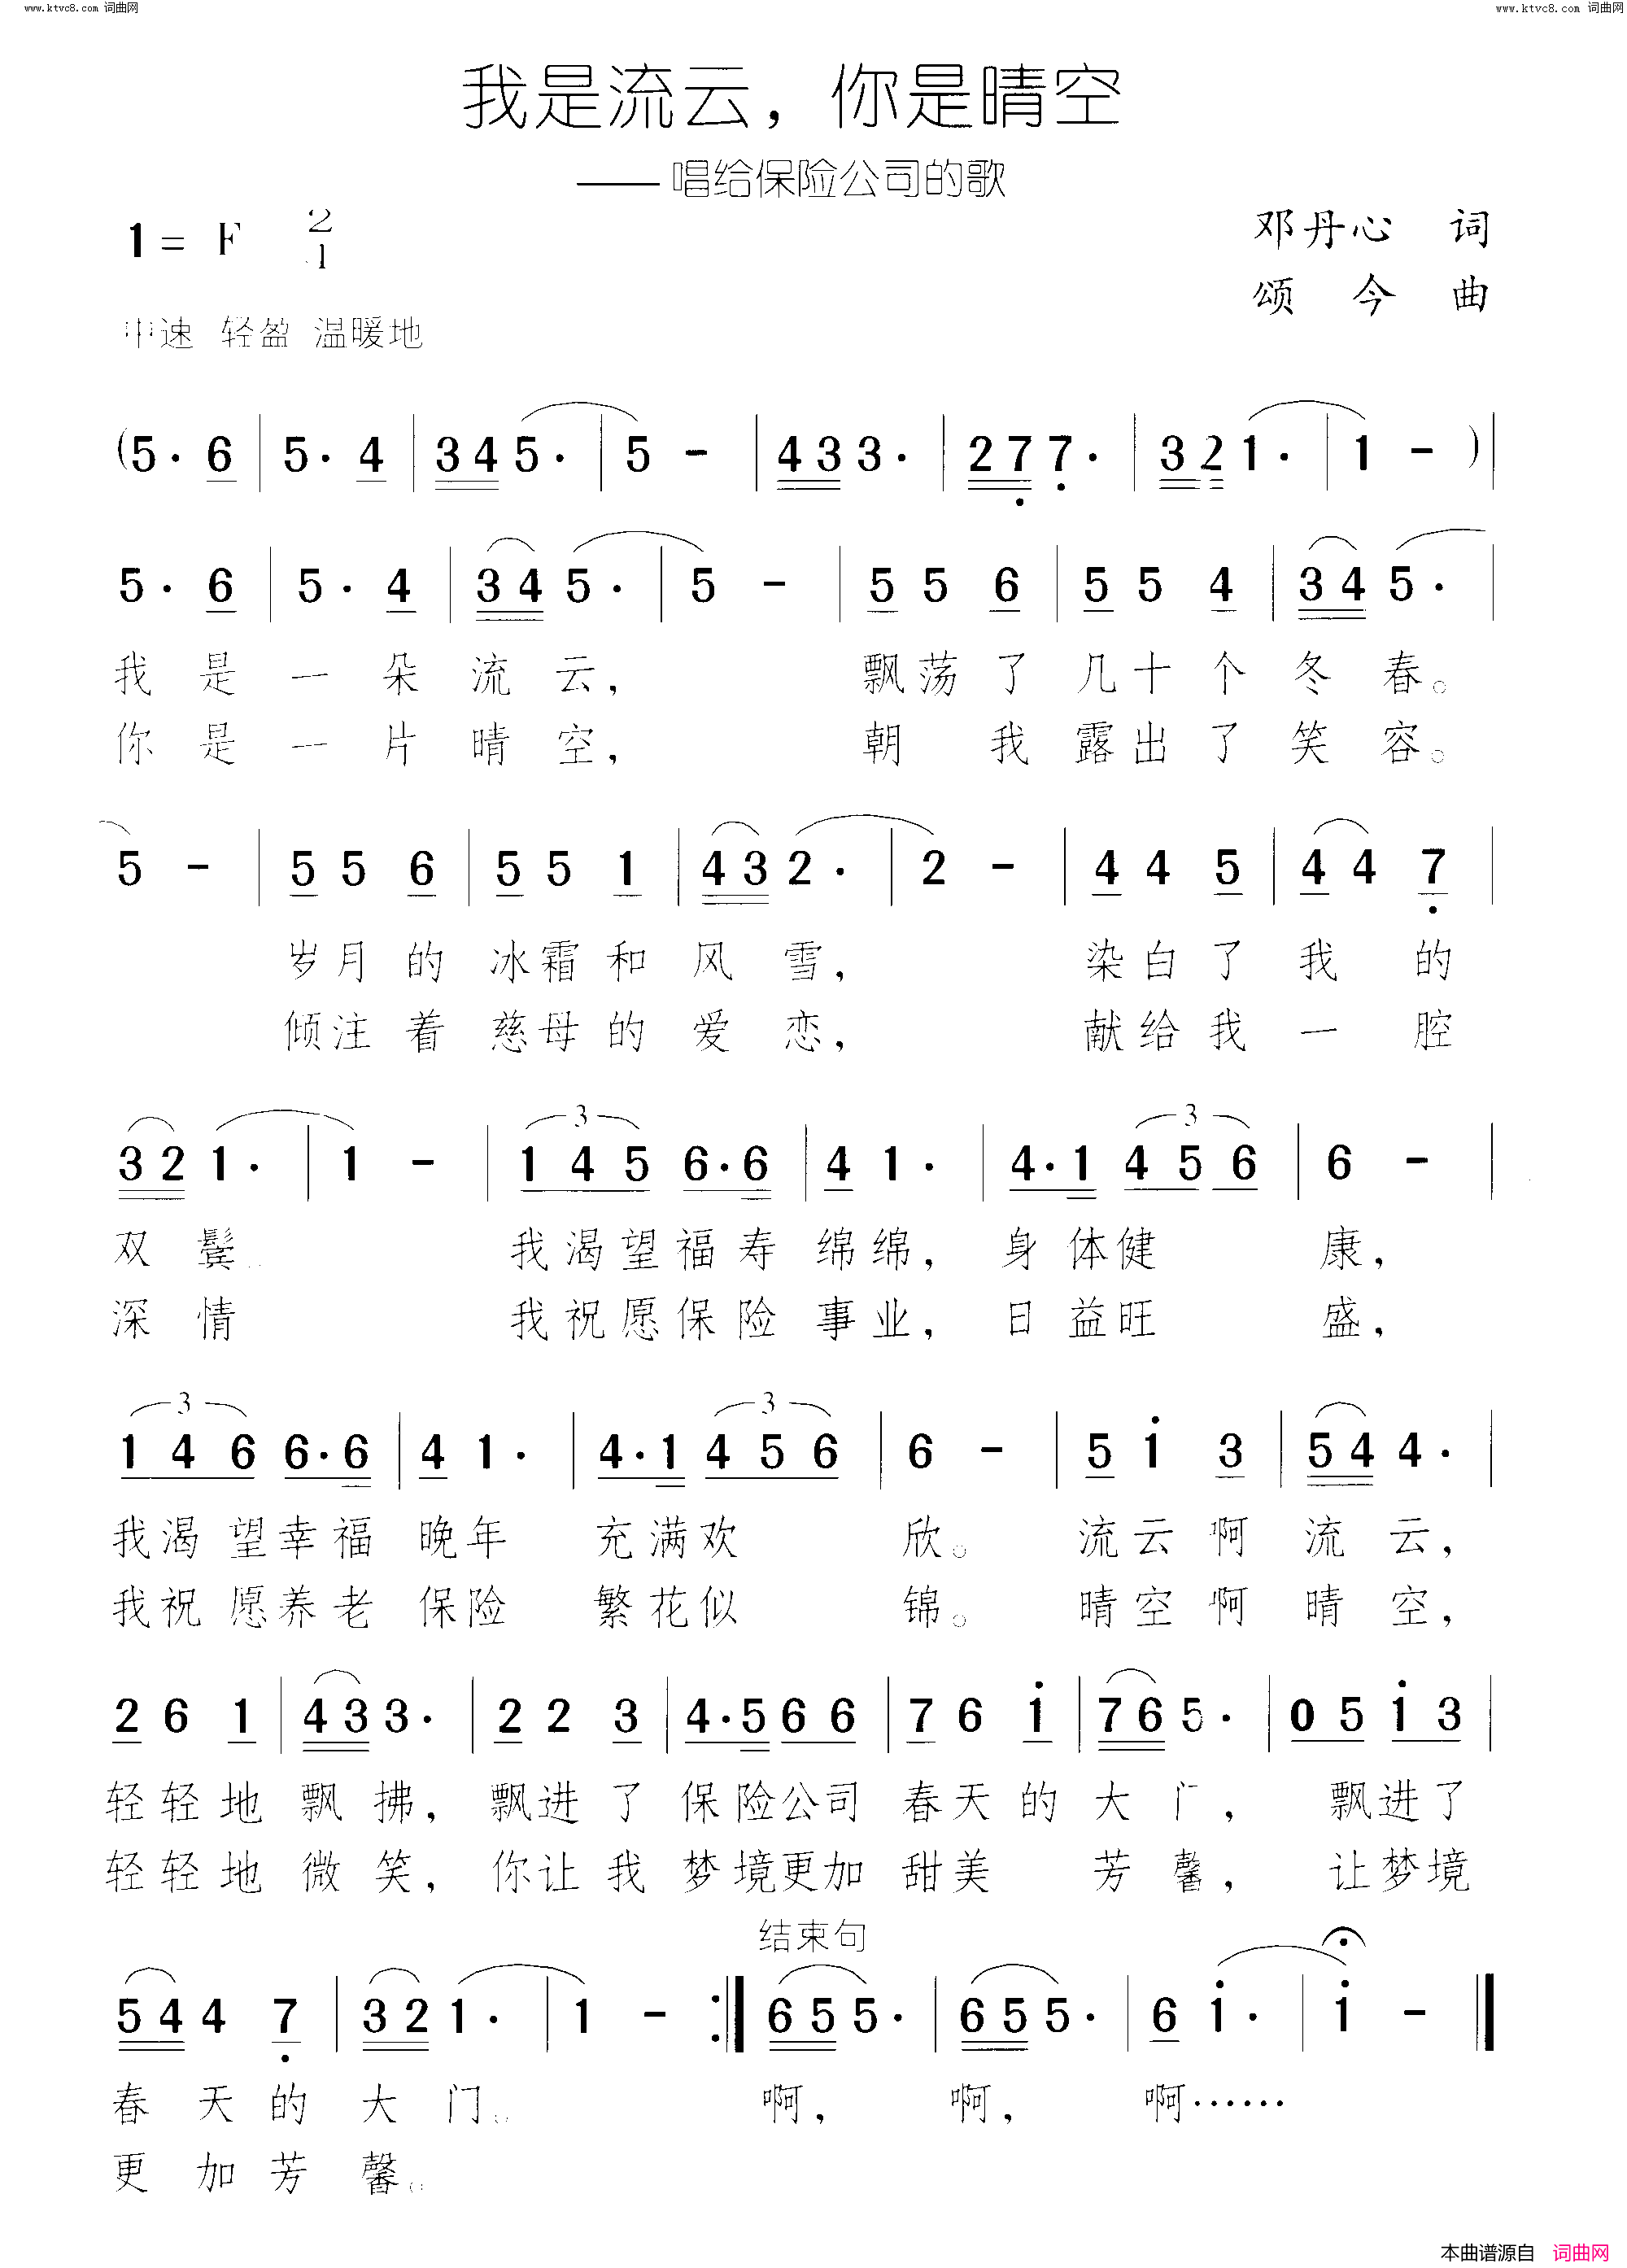 www.ktvc8.com 词曲网
www.ktvc8.com 词曲网
我是流云，你是晴空
——唱给保险公司的歌
1 = F 2/4
邓丹心 词
颂今 曲
中速 轻盈 温暖地
(5· 6 | 5· 4 | 3 4 5· | 5 - | 4 3 3· | 2 7̣ 7̣· | 3 2 1· | 1 - ) |
5· 6 | 5· 4 | 3 4 5· | 5 - | 5 5 6 | 5 5 4 | 3 4 5· |
我 是 一 朵 流 云， 飘荡 了 几十 个 冬 春。
你 是 一 片 晴 空， 朝 我 露出 了 笑 容。
5 - | 5 5 6 | 5 5 1 | 4 3 2· | 2 - | 4 4 5 | 4 4 7̣ |
岁月 的 冰霜 和 风 雪， 染白 了 我 的
倾注 着 慈母 的 爱 恋， 献给 我 一 腔
3 2 1· | 1 - | 1 4 5 6· 6 | 4 1· | 4· 1 4 5 6 | 6 - |
3 3
双 鬓。 我渴望福寿 绵绵， 身体健 康，
深 情 我祝愿保险 事业， 日益旺 盛，
1 4 6 6· 6 | 4 1· | 4· 1 4 5 6 | 6 - | 5 i 3 | 5 4 4· |
3 3
我渴 望幸福 晚年 充满欢 欣。 流云 啊 流 云，
我祝 愿养老 保险 繁花似 锦。 晴空 啊 晴 空，
2 6 1 | 4 3 3· | 2 2 3 | 4· 5 6 6 | 7 6 i | 7 6 5· | 0 5 i 3 |
轻轻 地 飘 拂， 飘进 了 保险公司 春天 的 大 门， 飘进了
轻轻 地 微 笑， 你让 我 梦境更加 甜美 芳 馨， 让梦境
结束句
5 4 4 7̣ | 3 2 1· | 1 - :‖ 6 5 5· | 6 5 5· | 6 i· | i - ‖
春 天 的 大 门。 啊， 啊， 啊……
更 加 芳 馨。
本曲谱源自 词曲网